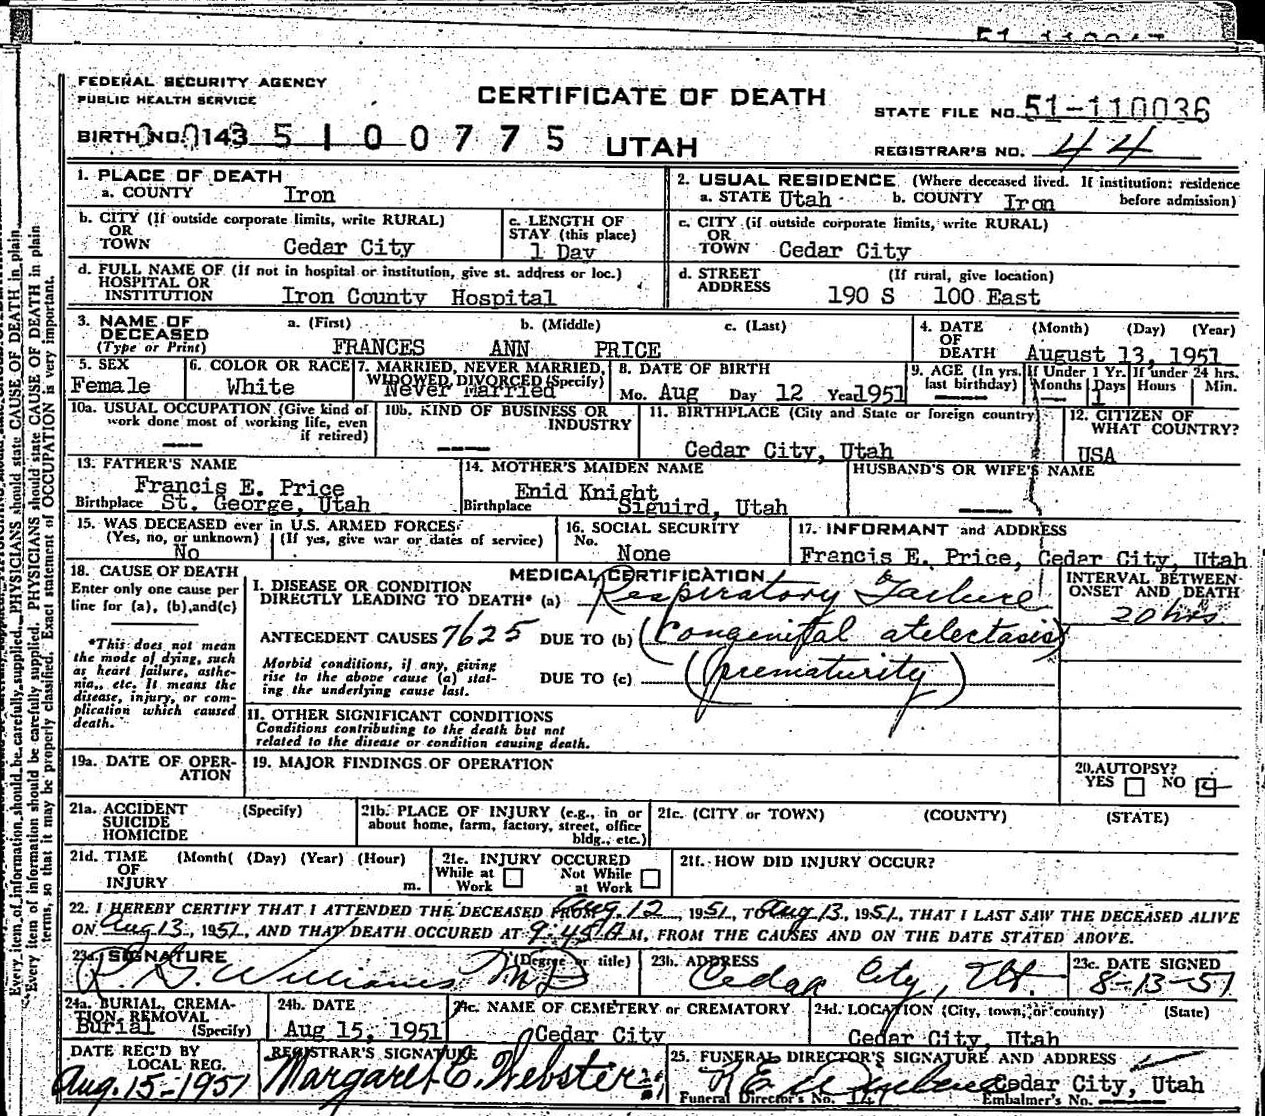 FEDERAL SECURITY AGENCY
PUBLIC HEALTH SERVICE
CERTIFICATE OF DEATH
UTAH
STATE FILE NO. 51-110036
BIRTH NO. 143 5100775
REGISTRAR'S NO. 44
1. PLACE OF DEATH
a. COUNTY Iron
2. USUAL RESIDENCE (Where deceased lived. If institution: residence before admission)
a. STATE Utah b. COUNTY Iron
b. CITY (If outside corporate limits, write RURAL)
OR
TOWN Cedar City
c. LENGTH OF
STAY (this place)
1 Day
c. CITY (if outside corporate limits, write RURAL)
OR
TOWN Cedar City
d. FULL NAME OF (If not in hospital or institution, give st. address or loc.)
HOSPITAL OR
INSTITUTION Iron County Hospital
d. STREET (If rural, give location)
ADDRESS 190 S 100 East
3. NAME OF
DECEASED
(Type or Print)
a. (First) b. (Middle) c. (Last)
FRANCES ANN PRICE
4. DATE (Month) (Day) (Year)
OF
DEATH August 13, 1951
5. SEX
Female
6. COLOR OR RACE
White
7. MARRIED, NEVER MARRIED,
WIDOWED, DIVORCED (Specify)
Never Married
8. DATE OF BIRTH
Mo. Aug Day 12 Year 1951
9. AGE (In yrs. last birthday)
If Under 1 Yr.
Months Days
1
If under 24 hrs.
Hours Min.
10a. USUAL OCCUPATION (Give kind of
work done most of working life, even
if retired)
10b. KIND OF BUSINESS OR
INDUSTRY
11. BIRTHPLACE (City and State or foreign country)
Cedar City, Utah
12. CITIZEN OF
WHAT COUNTRY?
USA
13. FATHER'S NAME
Francis E. Price
Birthplace St. George, Utah
14. MOTHER'S MAIDEN NAME
Enid Knight
Birthplace Siguird, Utah
HUSBAND'S OR WIFE'S NAME
15. WAS DECEASED ever in U.S. ARMED FORCES?
(Yes, no, or unknown) (If yes, give war or dates of service)
No
16. SOCIAL SECURITY
No.
None
17. INFORMANT and ADDRESS
Francis E. Price, Cedar City, Utah
18. CAUSE OF DEATH
Enter only one cause per
line for (a), (b), and (c)
*This does not mean
the mode of dying, such
as heart failure, asthe-
nia, etc. It means the
disease, injury, or com-
plication which caused
death.
MEDICAL CERTIFICATION
I. DISEASE OR CONDITION
DIRECTLY LEADING TO DEATH* (a) Respiratory Failure
INTERVAL BETWEEN
ONSET AND DEATH
20 hrs.
ANTECEDENT CAUSES 7625 DUE TO (b) (Congenital atelectasis)
Morbid conditions, if any, giving
rise to the above cause (a) stat-
ing the underlying cause last.
DUE TO (c) (prematurity)
II. OTHER SIGNIFICANT CONDITIONS
Conditions contributing to the death but not
related to the disease or condition causing death.
19a. DATE OF OPER-
ATION
19. MAJOR FINDINGS OF OPERATION
20. AUTOPSY?
YES NO
21a. ACCIDENT (Specify)
SUICIDE
HOMICIDE
21b. PLACE OF INJURY (e.g., in or
about home, farm, factory, street, office
bldg., etc.)
21c. (CITY or TOWN) (COUNTY) (STATE)
21d. TIME (Month( (Day) (Year) (Hour)
OF
INJURY m.
21e. INJURY OCCURED
While at Work Not While at Work
21f. HOW DID INJURY OCCUR?
22. I HEREBY CERTIFY THAT I ATTENDED THE DECEASED FROM Aug. 12, 1951, TO Aug 13, 1951, THAT I LAST SAW THE DECEASED ALIVE
ON Aug 13, 1951, AND THAT DEATH OCCURED AT 9:45 A M, FROM THE CAUSES AND ON THE DATE STATED ABOVE.
23a. SIGNATURE (Degree or title)
R. G. Williams MD
23b. ADDRESS
Cedar City, Ut.
23c. DATE SIGNED
8-13-51
24a. BURIAL, CREMA-
TION, REMOVAL
Burial (Specify)
24b. DATE
Aug 15, 1951
24c. NAME OF CEMETERY or CREMATORY
Cedar City
24d. LOCATION (City, town, or county) (State)
Cedar City, Utah
DATE REC'D BY
LOCAL REG.
Aug. 15-1951
REGISTRAR'S SIGNATURE
Margaret C. Webster
25. FUNERAL DIRECTOR'S SIGNATURE AND ADDRESS
Cedar City, Utah
Funeral Director's No. Embalmer's No.
Every item of information should be carefully supplied. PHYSICIANS should state CAUSE OF DEATH in plain
terms, so that it may be properly classified. Exact statement of OCCUPATION is very important.